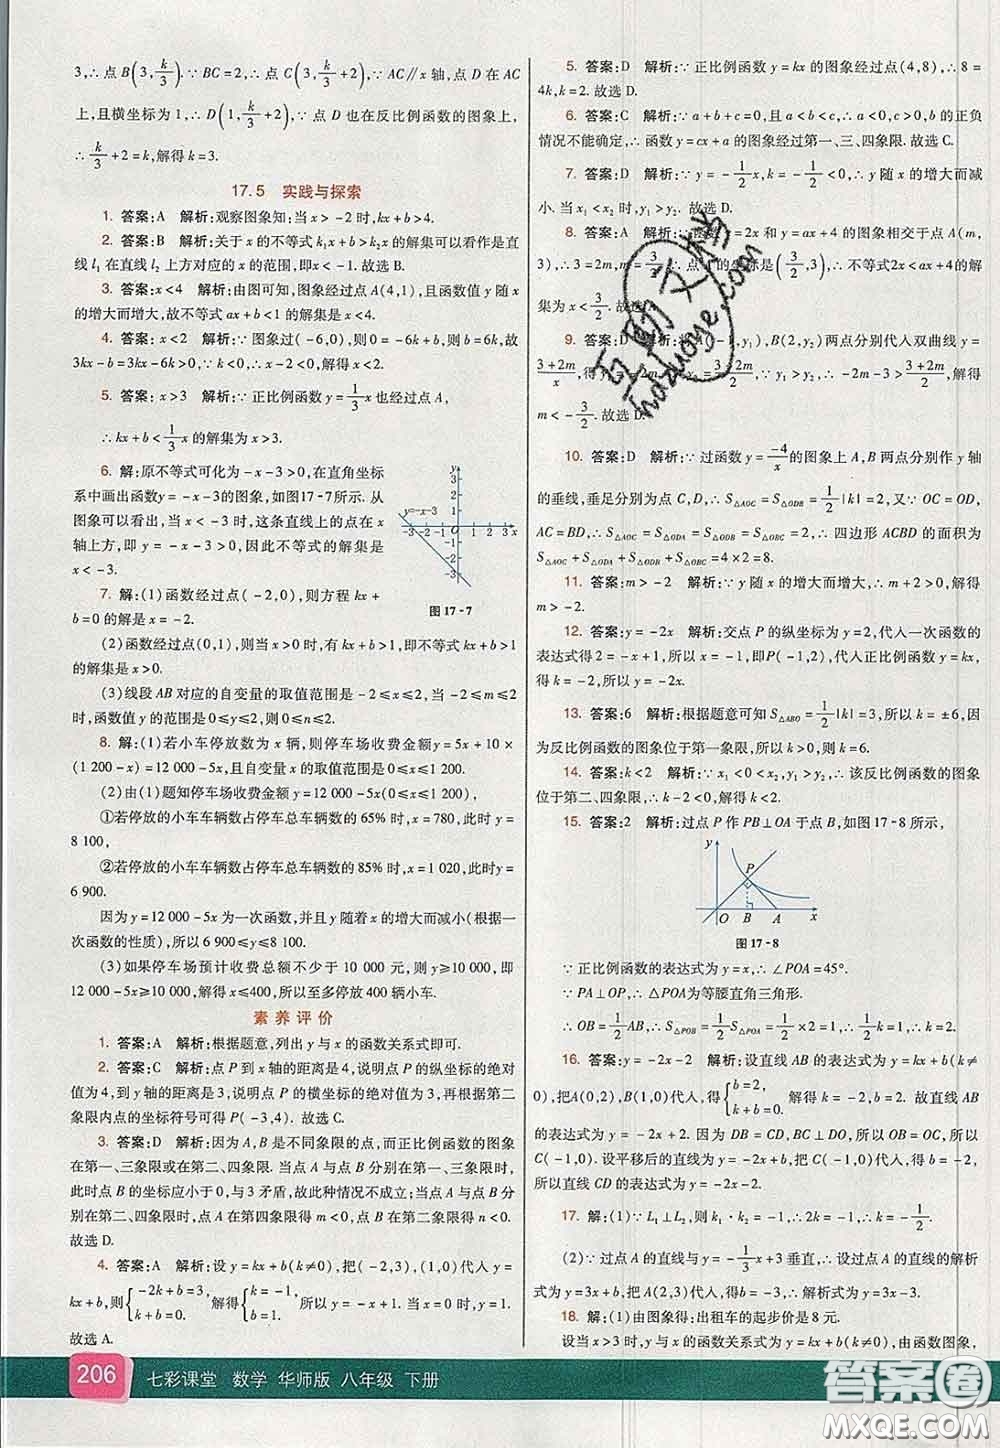 3,∴点B(3,k/3).∵BC=2,∴点C(3,k/3+2),∵AC∥x轴,点D在AC
上,且横坐标为1,∴D(1,k/3+2),∵点D也在反比例函数的图象上,
∴k/3+2=k,解得k=3.
17.5 实践与探索
1. 答案:A 解析:观察图象知:当x>-2时,kx+b>4.
2. 答案:B 解析:关于x的不等式k₁x+b>k₂x的解集可以看作是直
线l₁在直线l₂上方对应的x的范围,即x<-1.故选B.
3. 答案:x<4 解析:由图可知,图象经过点A(4,1),且函数值y随x
的增大而增大,故不等式ax+b<1的解集为x<4.
4. 答案:x<2 解析:∵图象过(-6,0),则0=-6k+b,则b=6k,故
3kx-b=3kx-6k>0,∵k<0,∴x-2<0,解得x<2.
5. 答案:x>3 解析:∵正比例函数y=1/3x也经过点A,
∴kx+b<1/3x的解集为x>3.
6. 解:原不等式可化为-x-3>0,在直角坐标
系中画出函数y=-x-3的图象,如图17-7所示.从
图象可以看出,当x<-3时,这条直线上的点在x
轴上方,即y>0,因此不等式的解集为x<-3.
y=-x-3
图17-7
7. 解:(1)函数经过点(-2,0),则方程kx+
b=0的解是x=-2.
(2)函数经过点(0,1),则当x>0时,有kx+b>1,即不等式kx+b>1
的解集是x>0.
(3)线段AB对应的自变量的取值范围是-2≤x≤2,当-2≤m≤2
时,函数值y的范围是0≤y≤2,则0≤n≤2.
8. 解:(1)若小车停放数为x辆,则停车场收费金额y=5x+10×
(1 200-x)=12 000-5x,自变量x的取值范围是0≤x≤1 200.
(2)由(1)题知停车场收费金额y=12 000-5x(0≤x≤1 200),
①若停放的小车车辆数占停车总车辆数的65%时,x=780,此时y=
8 100,
②若停放的小车车辆数占停车总车辆数的85%时,x=1 020,此时y=
6 900.
因为y=12 000-5x为一次函数,并且y随着x的增大而减小(根据一
次函数的性质),所以6 900≤y≤8 100.
(3)如果停车场预计收费总额不少于10 000元,则y≥10 000,即
12 000-5x≥10 000,解得x≤400,所以至多停放400辆小车.
素养评价
1. 答案:A 解析:根据题意,列出y与x的函数关系式即可.
2. 答案:C 解析:点P到x轴的距离是4,说明点P的纵坐标的绝对
值为4,到y轴的距离是3,说明点P的横坐标的绝对值为3,再根据第二
象限内点的坐标符号可得P(-3,4).故选C.
3. 答案:D 解析:因为A,B是不同象限的点,而正比例函数的图象
在第一、三象限或在第二、四象限.当点A与点B分别在第一、三象限时,
此时点B的坐标应小于0,与3矛盾,所以此种情况不成立.当点A与点B分
别在第二、四象限时,由点A在第四象限得m<0,点B在第二象限得n<0.
故选D.
4. 答案:A 解析:设y=kx+b(k≠0),把(-2,3),(1,0)代入y=
kx+b,则{-2k+b=3,k+b=0.解得{k=-1,b=1.所以y=-x+1.当x=0时,y=1.
故选A.
5. 答案:D 解析:∵正比例函数y=kx的图象经过点(4,8),∴8=
4k,k=2.故选D.
6. 答案:C 解析:∵a+b+c=0,且a<b<c,∴a<0,c>0,b的正负
情况不能确定,∴函数y=cx+a的图象经过第一、三、四象限.故选C.
7. 答案:D 解析:∵y=-1/2x,k=-1/2<0,∴y随x的增大而减
小.当x₁<x₂时,y₁>y₂.故选D.
8. 答案:A 函数y=2x和y=ax+4的图象相交于点A(m,
3),∴3=2m,m=3/2,∴点A的坐标是(3/2,3),∴不等式2x<ax+4的解
集为x<3/2.故选
9. 答案:D (-1,y₁),B(2,y₂)两点分别代入双曲线y=
(3+2m)/x,得y₁=-3-2m,y₂=(3+2m)/2.∵y₁>y₂,∴-2m-3>(3+2m)/2,解得
m<-3/2.故选D.
10. 答案:D 解析:∵过函数y=-4/x的图象上A,B两点分别作y轴
的垂线,垂足分别为点C,D,∴S△AOC=S△ODB=1/2|k|=2,又∵OC=OD,
AC=BD,∴S△AOC=S△ODA=S△ODB=S△OBC=2,∴四边形ACBD的面积为
S△AOC+S△ODA+S△ODB+S△OBC=4×2=8.
11. 答案:m>-2 解析:∵y随x的增大而增大,∴m+2>0,解得
m>-2.
12. 答案:y=-2x 解析:交点P的纵坐标为y=2,代入一次函数的
表达式得2=-x+1,所以x=-1,即P(-1,2),代入正比例函数y=kx,
得k=-2,所以y=-2x.
13. 答案:6 解析:根据题意可知S△ABO=1/2|k|=3,所以k=±6,因
为反比例函数的图象位于第一象限,所以k>0,所以k=6.
14. 答案:k<2 解析:∵x₁<0<x₂时,y₁>y₂,∴该反比例函数的图象
位于第二、四象限,∴k-2<0,解得k<2.
15. 答案:2 解析:过点P作PB⊥OA于点B,如图17-8所示,
y
P
O B A x
图17-8
∵正比例函数的表达式为y=x,∴∠POA=45°.
∵PA⊥OP,∴△POA为等腰直角三角形.
∴OB=1/2AB,∴S△POB=1/2S△POA=1/2×2=1,∴1/2k=1,∴k=2.
16. 答案:y=-2x-2 解析:设直线AB的表达式为y=kx+b(k≠
0),把A(0,2),B(1,0)代入,得{b=2,k+b=0.解得k=-2,b=2.故直线AB的
表达式为y=-2x+2.因为DB=CD,BC⊥OD,所以OB=OC,所以
C(-1,0).设平移后的直线为y=-2x+b,把C(-1,0)代入,得b=-2,
所以直线CD的表达式为y=-2x-2.
17. 解:(1)∵L₁⊥L₂,则k₁·k₂=-1,∴2k=-1,∴k=-1/2.
(2)∵过点A的直线与y=-1/3x+3垂直,∴设过点A的直线的解析
式为y=3x+b,把A(2,3)代入,得b=-3,∴解析式为y=3x-3.
18. 解:(1)由图象得:出租车的起步价是8元.
设当x>3时,y与x的函数关系式为y=kx+b(k≠0),由函数图象,
206 七彩课堂 数学 华师版 八年级 下册
答案圈
MXQE.COM